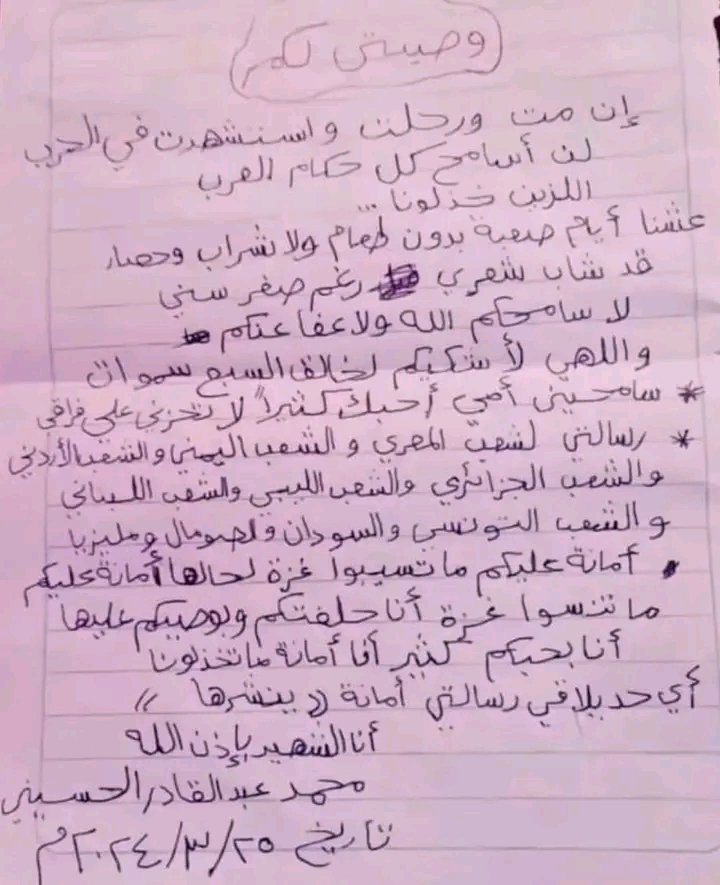 وصيتي لكم
إن مت ورحلت واستشهدت في الحرب
لن أسامح كل حكام العرب
اللزين خذلونا ...
عشنا أيام صعبة بدون طعام ولا شراب وحصار
قد شاب شعري رغم صغر سني
لا سامحكم الله ولا عفا عنكم
واللهي لأشكيكم لخالق السبع سموات
* سامحيني أمي أحبك كثيراً لا تحزني على فراقي
* رسالتي لشعب المصري و الشعب اليمني والشعب الأردني
والشعب الجزائري والشعب الليبي والشعب اللبناني
والشعب التونسي والسودان ولصومال ومليزيا
• أمانة عليكم ما تسيبوا غزة لحالها أمانة عليكم
ما تنسوا غزة أنا حلفتكم وبوصيكم عليها
أنا بحبكم كثير أنا أمانة ما تخذلونا
أي حد بلاقي رسالتي أمانة (( ينشرها ))
أنا الشهيد بإذن الله
محمد عبد القادر الحسيني
تاريخ ٢٠٢٤/٣/٢٥م